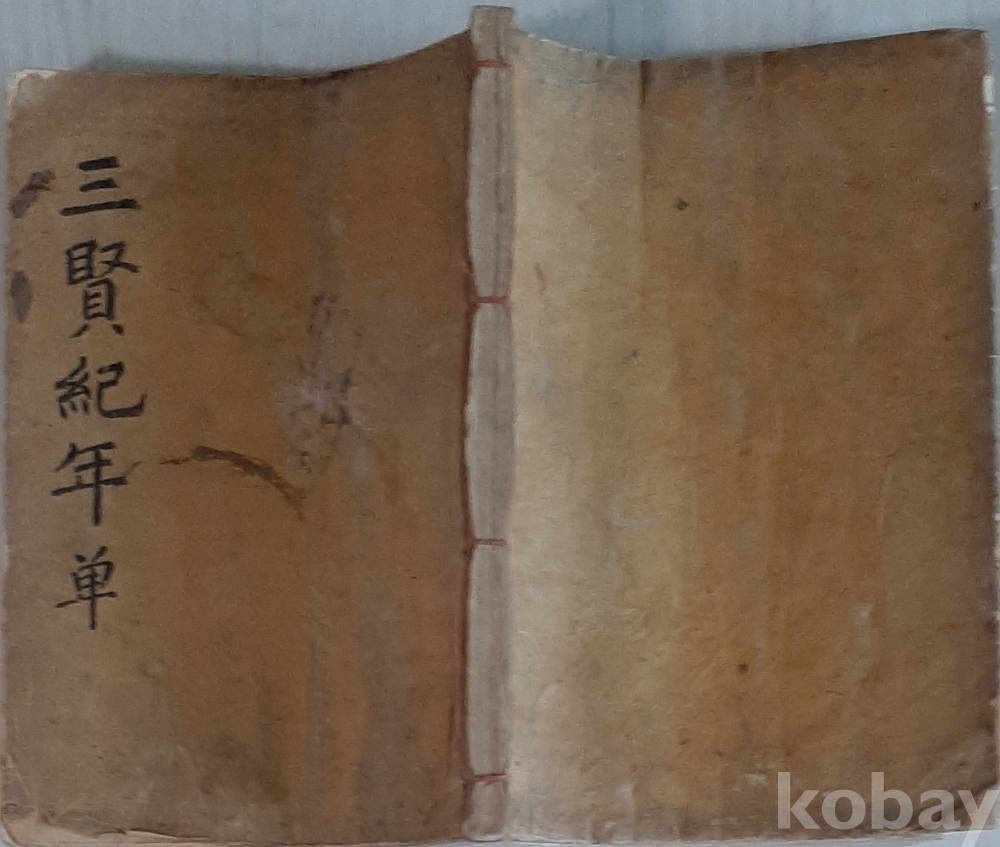 三賢紀年 単
kobay